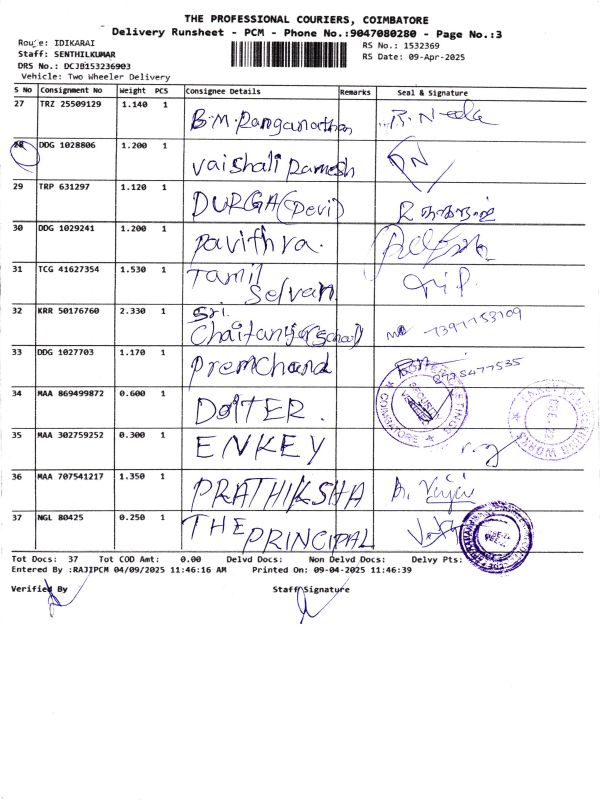 THE PROFESSIONAL COURIERS, COIMBATORE
Delivery Runsheet - PCM - Phone No.:9047080280 - Page No.:3
Route: IDIKARAI
RS No.: 1532369
Staff: SENTHILKUMAR
RS Date: 09-Apr-2025
DRS No.: DCJB153236903
Vehicle: Two Wheeler Delivery
S No Consignment No Weight PCS Consignee Details Remarks Seal & Signature
27 TRZ 25509129 1.140 1 B.M.Ranganathan
28 DDG 1028806 1.200 1 Vaishali Ramesh
29 TRP 631297 1.120 1 DURGA(Devi)
30 DDG 1029241 1.200 1 Pavithra.
31 TCG 41627354 1.530 1 Tamil
Selvan
32 KRR 50176760 2.330 1 Sri.
Chaitanya(School)
33 DDG 1027703 1.170 1 Premchand
34 MAA 869499872 0.600 1 DOITER.
COIMBATORE
35 MAA 302759252 0.300 1 ENKEY
36 MAA 707541217 1.350 1 PRATHIKSHA
37 NGL 80425 0.250 1 THE
PRINCIPAL
Tot Docs: 37 Tot COD Amt: 0.00 Delvd Docs: Non Delvd Docs: Delvy Pts:
Entered By :RAJIPCM 04/09/2025 11:46:16 AM Printed On: 09-04-2025 11:46:39
Verified By Staff Signature